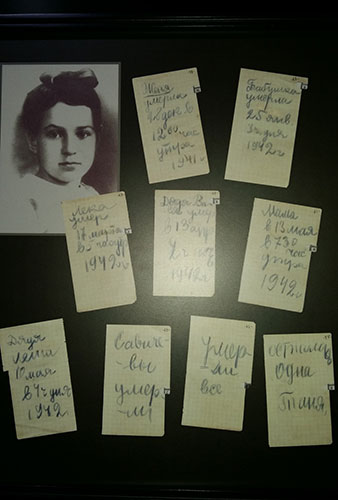 Женя
умерла
28 дек в
12 00 час
утра
1941 г
Бабушка
умерла
25 янв
3ч дня
1942 г
Лека
умер
17 марта
в 5 час у
1942 г
Дядя Ва
ся умер
в 13 апр
2 ч ноч
1942 г
Мама
в 13 мая
в 7 30
час
утра
1942 г
Дядя
Леша
10 мая
в 4ч дня
1942
Савиче
-вы
умер
-ли
Умер
ли
все
осталась
одна
Таня